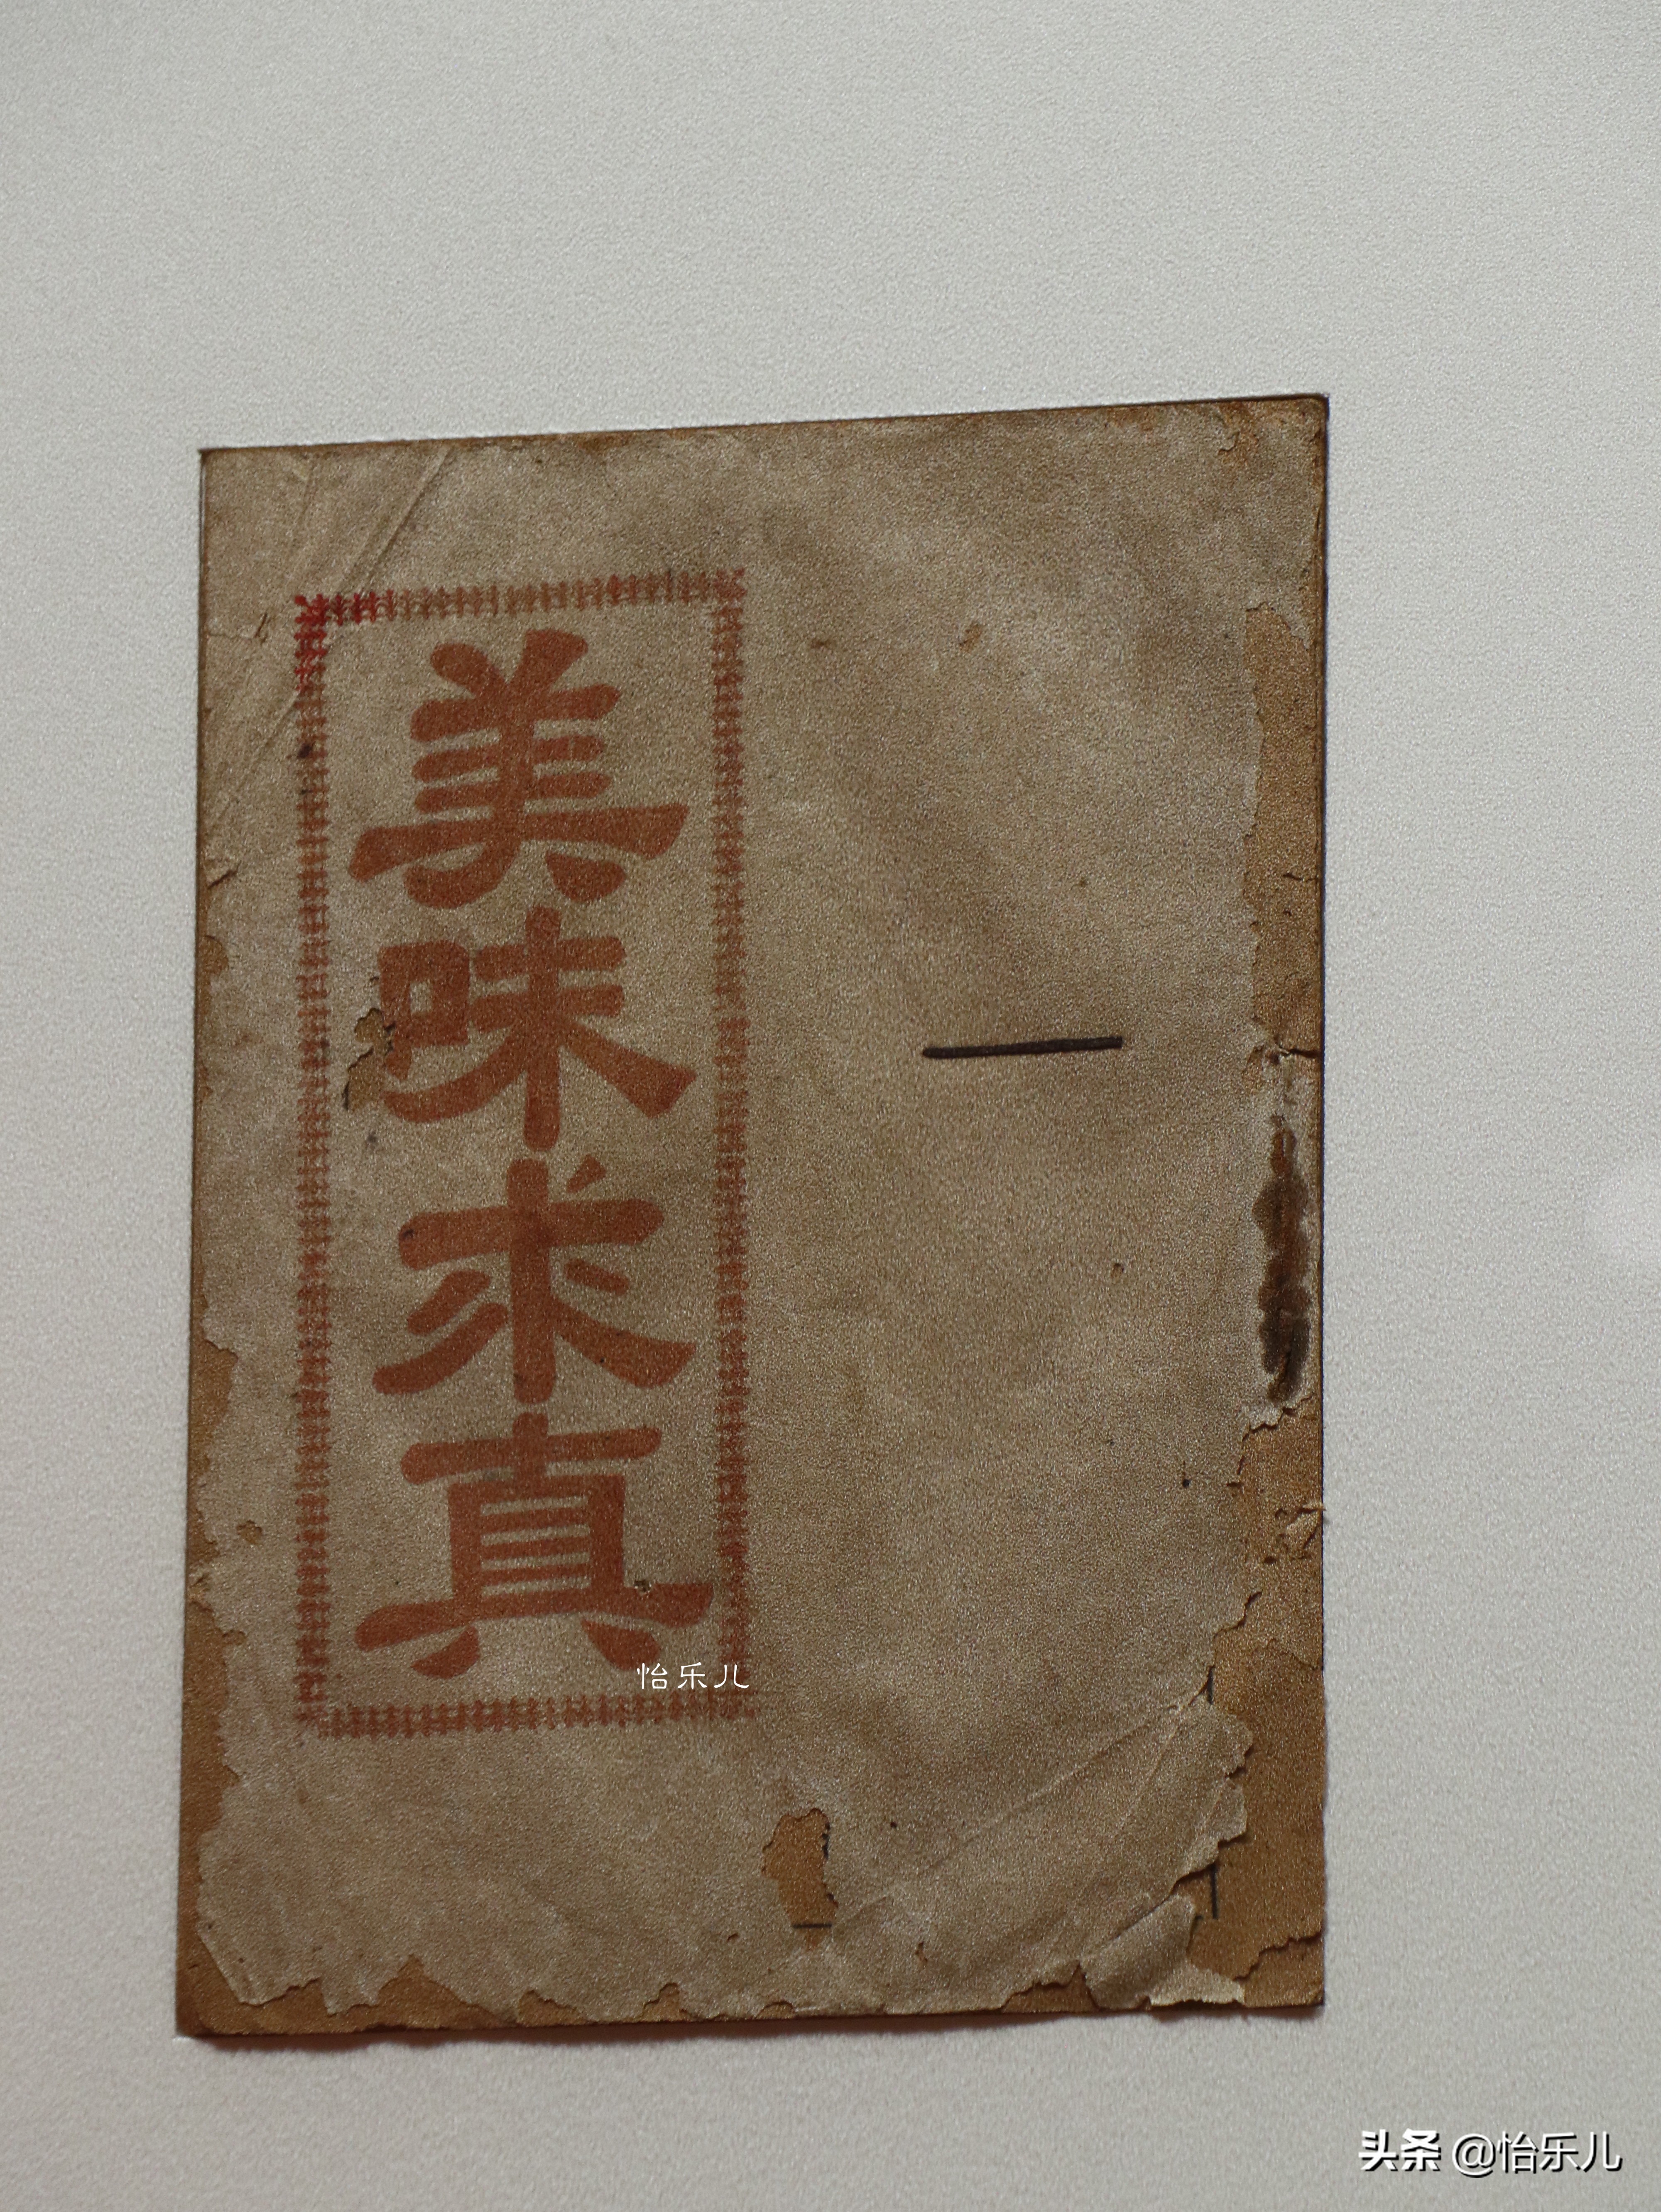 美味求真
一
怡乐儿
头条 @怡乐儿